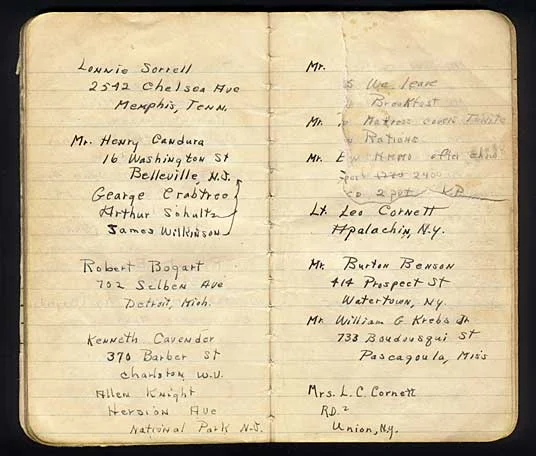 Lonnie Sorrell
2542 Chelsea Ave
Memphis, Tenn.
Mr. Henry Candura
16 Washington St
Belleville, N.J.
George Crabtree
Arthur Schultz
James Wilkinson
Robert Bogart
702 Selben Ave
Detroit, Mich.
Kenneth Cavender
370 Barber St
Charlston W.V.
Allen Knight
Ave
National Park N.J.
Mr.
We leave
Breakfast
Mr. Matress covers
Rations
Mr. Ammo after chow
2400
2 P.M. K.P.
Lt. Leo Cornett
Apalachin, N.Y.
Mr. Burton Benson
414 Prospect St
Watertown, Ny.
Mr. William G Krebs Jr
733 St
Pascagoula, Miss
Mrs. L.C. Cornett
RD. 2
Union, N.y.